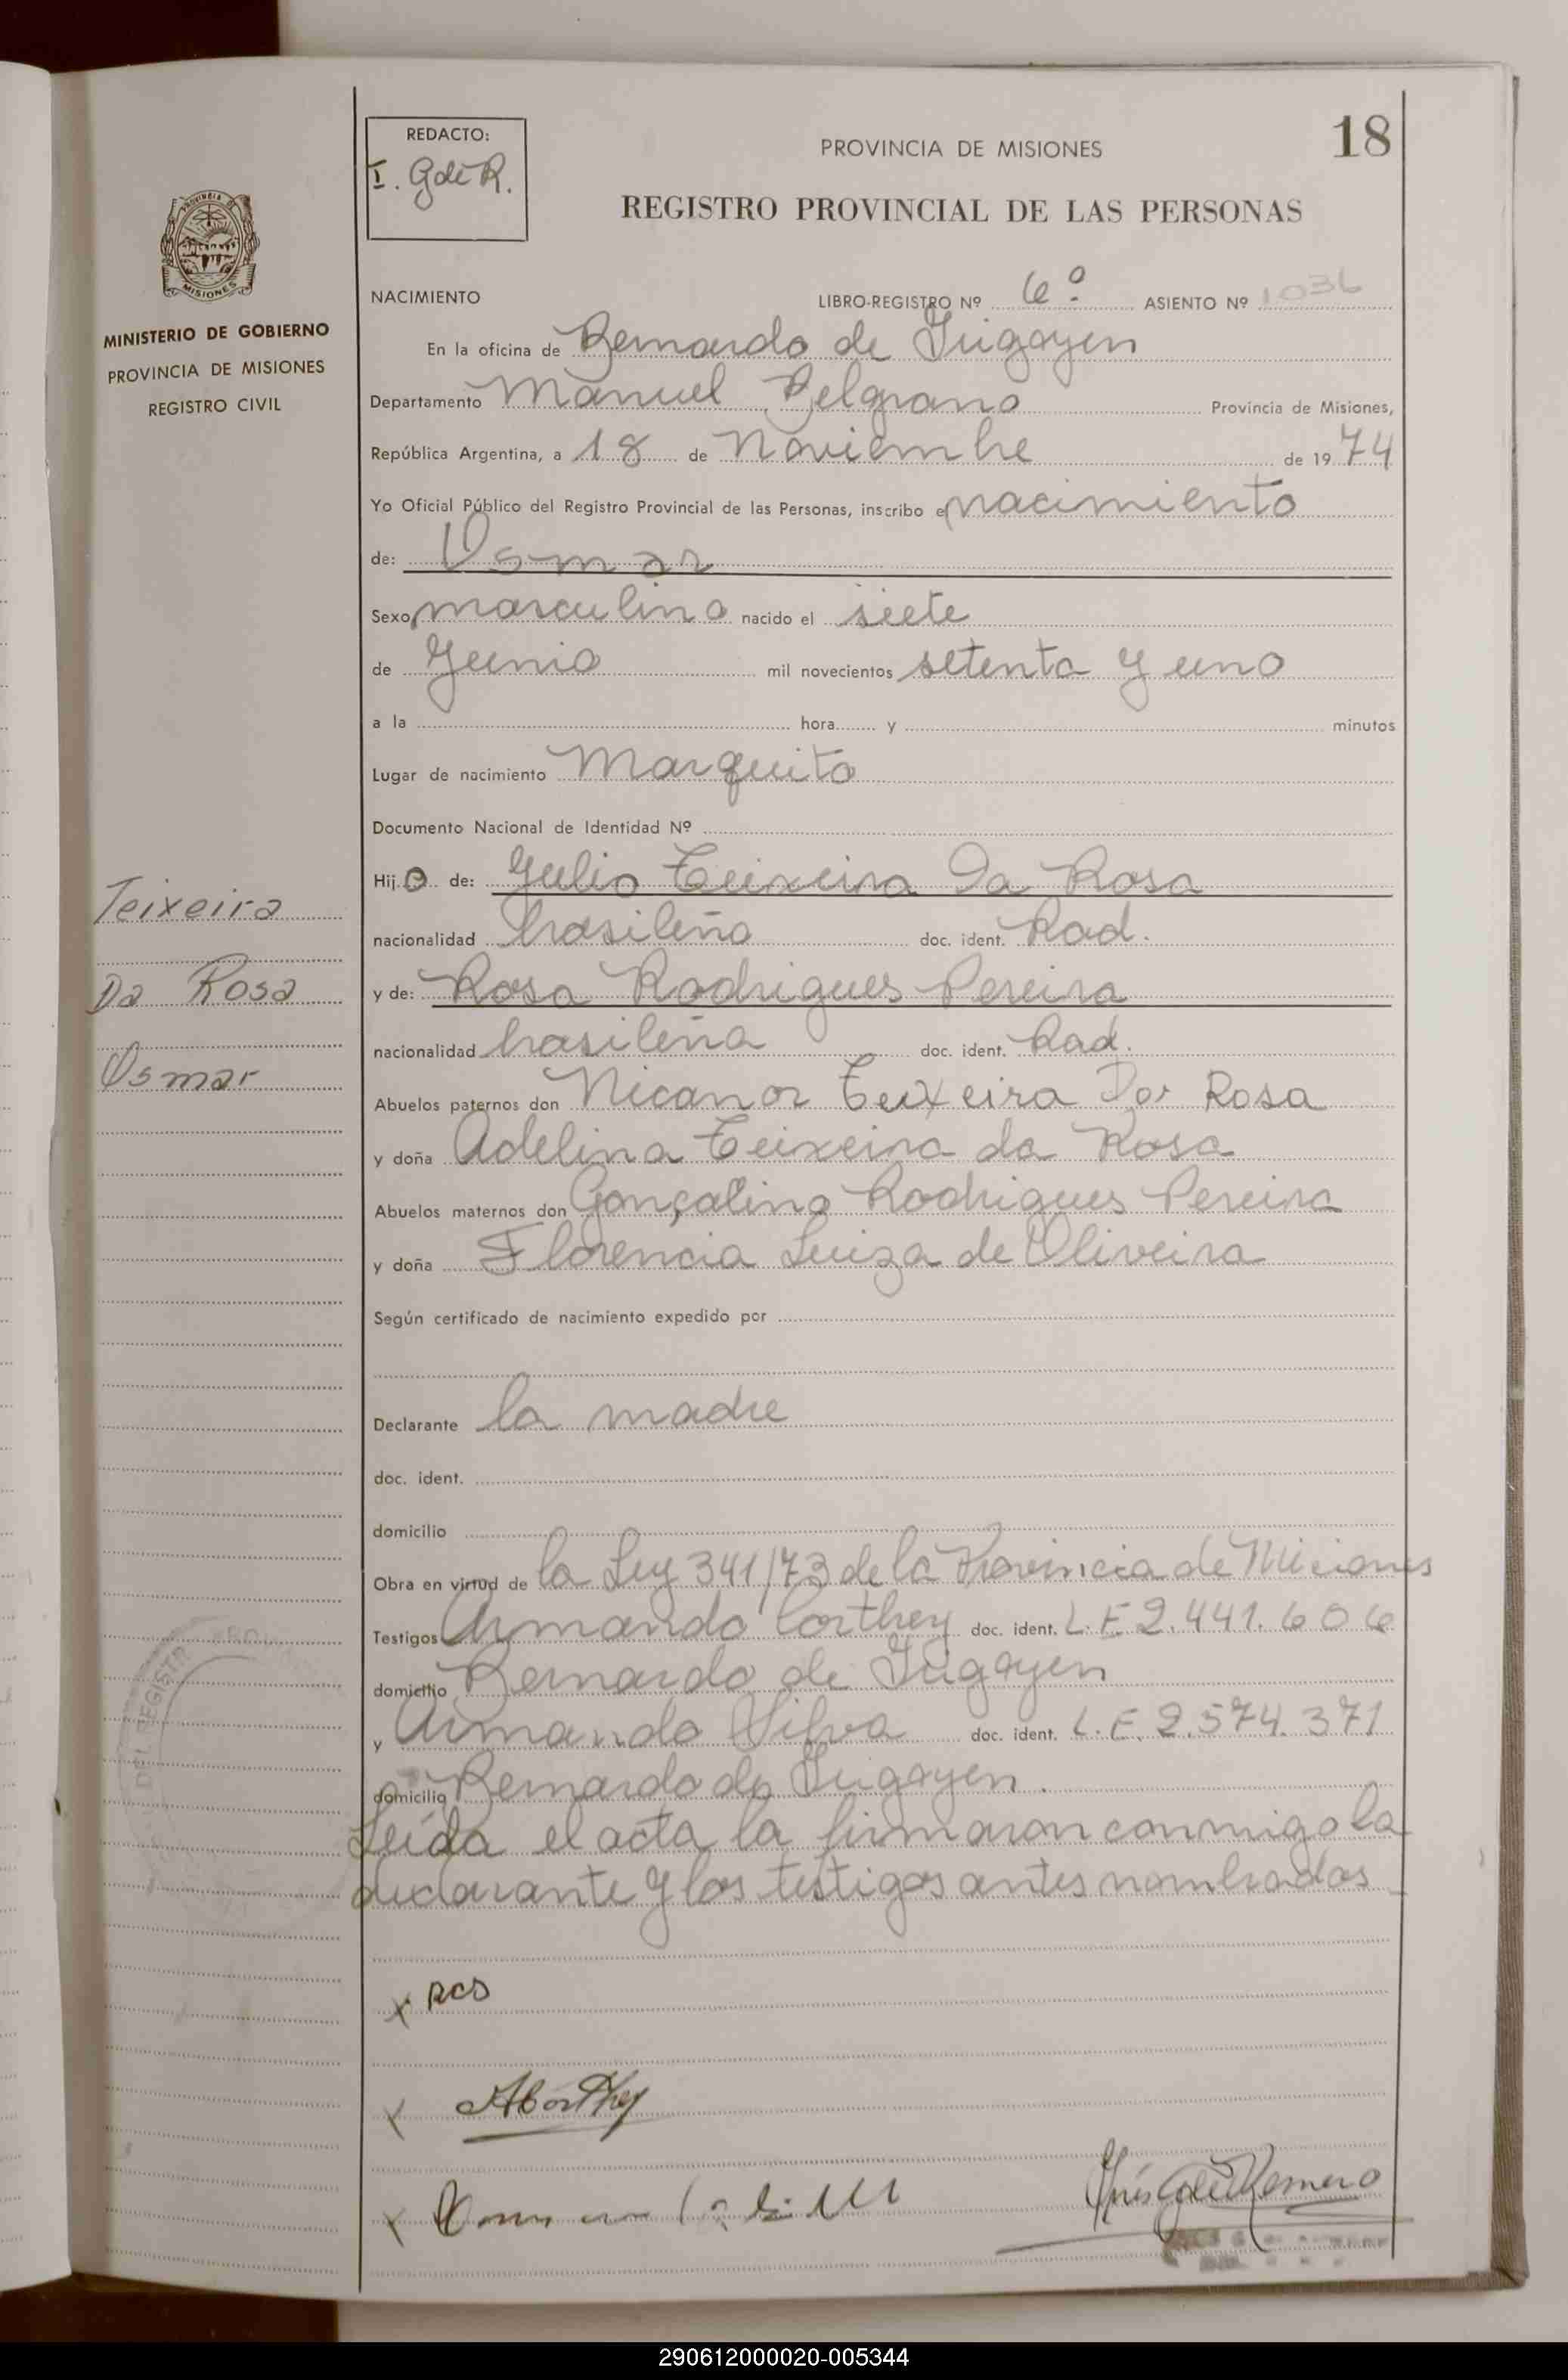 REDACTO:
I. G de R.
18
PROVINCIA DE MISIONES
REGISTRO PROVINCIAL DE LAS PERSONAS
MISIONES
MINISTERIO DE GOBIERNO
PROVINCIA DE MISIONES
REGISTRO CIVIL
NACIMIENTO LIBRO-REGISTRO Nº 6º ASIENTO Nº 1036
En la oficina de Bernardo de Irigoyen
Departamento Manuel Belgrano Provincia de Misiones,
República Argentina, a 18 de Noviembre de 1974
Yo Oficial Público del Registro Provincial de las Personas, inscribo el nacimiento
de: Osmar
Sexo masculino nacido el siete
de Junio mil novecientos setenta y uno
a la hora y minutos
Lugar de nacimiento Marquito
Documento Nacional de Identidad Nº
Hijo de: Julio Teixeira Da Rosa
nacionalidad brasileño doc. ident. Rad.
y de: Rosa Rodrigues Pereira
nacionalidad brasileña doc. ident. Rad.
Abuelos paternos don Nicanor Teixeira Da Rosa
y doña Adelina Teixeira da Rosa
Abuelos maternos don Gonçalino Rodrigues Pereira
y doña Florencia Luiza de Oliveira
Según certificado de nacimiento expedido por
Declarante la madre
doc. ident.
domicilio
Obra en virtud de la Ley 341/73 de la Provincia de Miciones
Testigos Armando Corthey doc. ident. L.E 2.441.606
domicilio Bernardo de Irigoyen
y Armando Silva doc. ident. L.E. 2.574.371
domicilio Bernardo de Irigoyen.
Leída el acta la firmaron conmigo la
declarante y los testigos antes nombrados
Teixeira
Da Rosa
Osmar
DEL REGISTR
x RCS
x ACorthey
x
Inés G de Romero
290612000020-005344